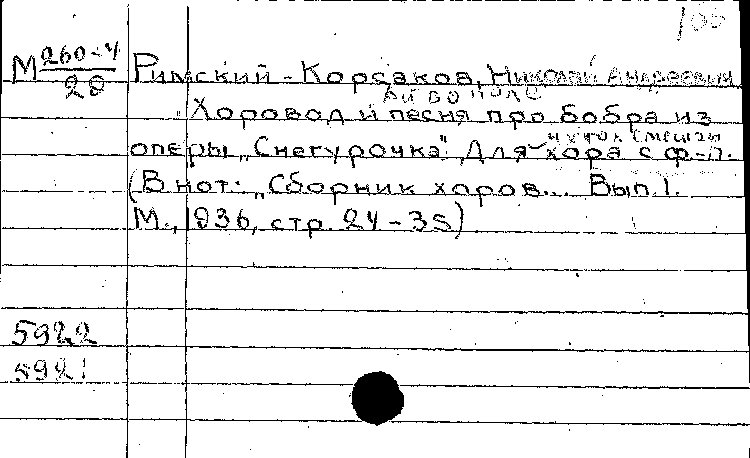 105
М 260-4
20
Римский-Корсаков, Николай Андреевич
Ай во поле
Хоровод и песня про бобра из
оперы „Снегурочка". Для хора с ф-п.
смешан
(В нот: „Сборник хоров... Вып.1.
М., 1936, стр. 24-35)
5922
5921